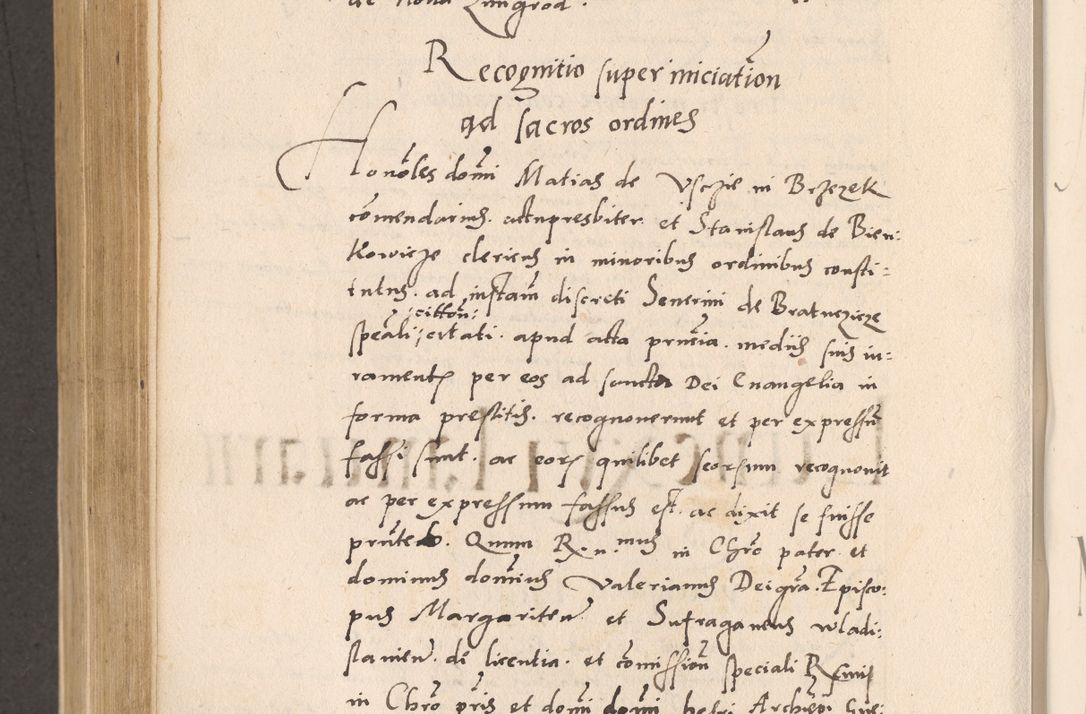 de Nova
Recognitio super iniciation
ad sacros ordines
Honoles domi Matias de Uscze in Brzezek
comendarius actupresbiter et Stanislaus de Bien:
kowicze clericus in minoribus ordinibus consti:
tutus ad instam discreti Severini de Bratuczicze
speali citton: certati apud acta prusia mediis suis iu:
rament per eos ad sancta Dei Evangelia in
forma prestitis recognoverunt et per expressu
fassi sunt ac eor quilibet seorsum recognovit
ac per expressum fassus est ac dixit se fuisse
prnte Quum R. n. mus in Chro pater et
dominus domius Valerianus Dei gra Episco:
pus Margariten et Sufraganeus wladi:
slavien de licentia et comission speali Rsmi
in Chro pris et domi domi Petri Archiepi